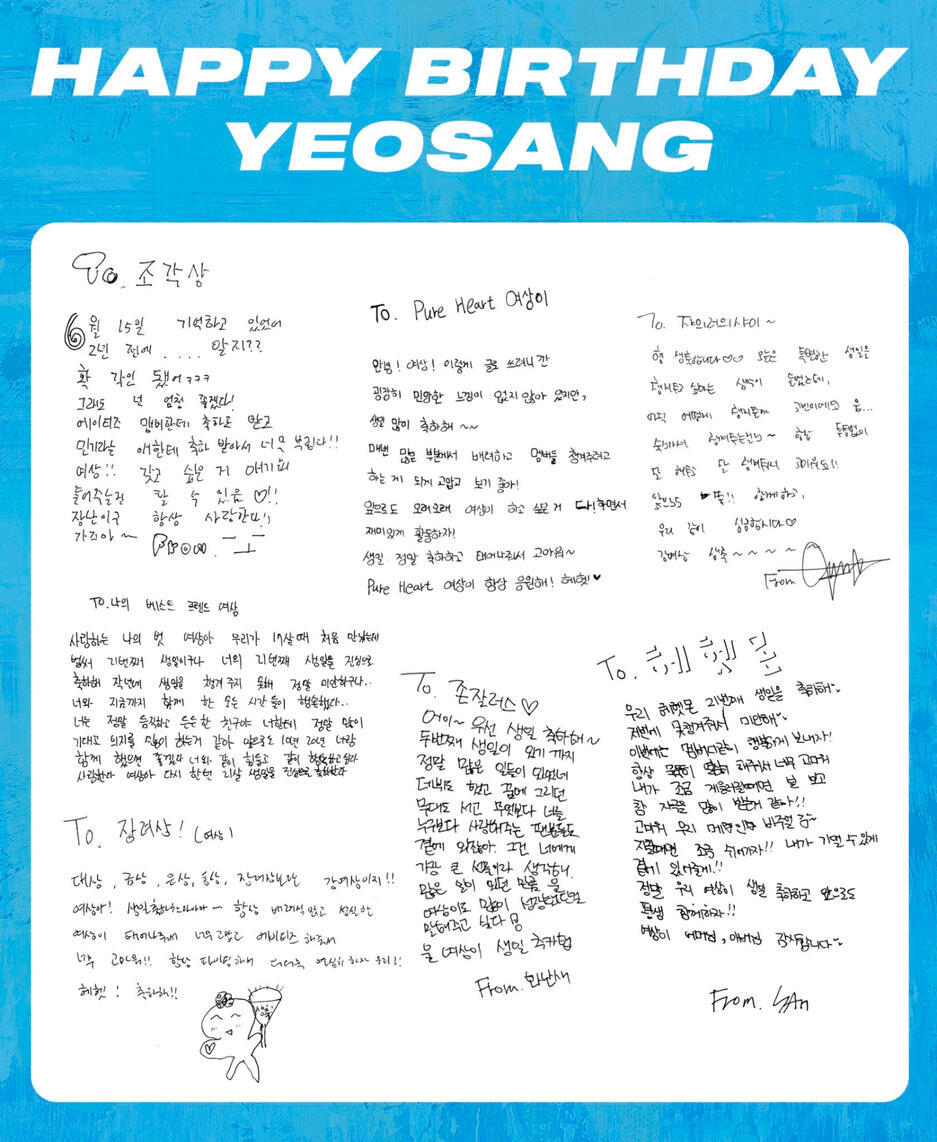 HAPPY BIRTHDAY
YEOSANG
To. 조각상
6월 15일 기억하고 있었어
2년 전에 .... 알지??
확 각인 됐어ㅋㅋㅋ
그래도 넌 엄청 좋겠다!
에이티즈 멤버한테 축하도 받고
민기라는 애한테 축하 받아서 너무 부럽다!!
여상!! 갖고 싶은 거 얘기해
들어주는걸 할 수 있음♡!!
장난이구 항상 사랑한다!!
가즈아~
From.
To. Pure Heart 여상이
안녕! 여상! 이렇게 글로 쓰려니 간
굉장히 민망한 느낌이 없지 않아 있지만,
생일 많이 축하해~~
매번 많은 부분에서 배려하고 멤버들 챙겨주려고
하는 게 되게 고맙고 보기 좋아!
앞으로도 오래오래 여상이 하고 싶은 거 다!하면서
재미있게 활동하자!
생일 정말 축하하고 태어나줘서 고마워~
Pure Heart 여상이 항상 응원해! 헤헷♥
To.
형 생축합니다♡♡ 오늘은 특별한 생일은
생각이 들었는데,
아직 어떻게 고민이에요 음...
항상
고마워요!!
앞으로도 쭉!! 함께하고,
우리 같이 성공합시다♡
생축~~~~
From.
To.나의 베스트 프렌드 여상
사랑하는 나의 벗 여상아 우리가 17살때 처음 만났는데
벌써 21번째 생일이구나 너의 21번째 생일을 진심으로
축하해 작년에 생일을 챙겨 주지 못해 정말 미안하구나..
너와 지금까지 함께 한 모든 시간 들이 행복했고..
너는 정말 듬직하고 든든한 친구야 너한테 정말 많이
기대고 의지를 많이 하는거 같아 앞으로도 10년 20년 너랑
함께 했으면 좋겠다 너와 같이 힘들고 같이 행복하고 싶다
사랑한다 여상아 다시 한번 21살 생일을 진심으로 축하한다
To. 장려상! (여상)
대상, 금상, 은상, 동상, 장려상보다는 강여상이지!!
여상아! 항상 배려심 많고 성실한
여상이 태어나줘서 너무 고맙고 에이티즈 해줘서
너무 고마워!! 항상 파이팅하고 더더욱 열심히 하자 우리!!
헤헷! 축하해!!
To. 존잘러스♡
어이~ 우선 생일 축하해~
두번째 생일이 오기 까지
정말 많은 일들이 있었네
데뷔도 했고 꿈에 그리던
무대도 서고 무엇보다 너를
누구보다 사랑해주는 팬분들도
곁에 와있잖아 그건 너에게
가장 큰 선물이라 생각해!
많은 일이 있던 만큼 울
여상이도 많이 성장했다고
말해주고 싶다 용
울 여상이 생일 축카혀
From. 화난새
To.
우리 헤헷몬 21번째 생일을 축하해~
저번에 못챙겨줘서 미안해~
이번에는 멤버다같이 행복하게 보내자!
항상 묵묵히 열심히 해주서 너무 고마워
내가 조금 게을러질때면 널 보고
참 자극을 많이 받는거 같아!!
고마워 우리 메인 비주얼
지칠때면 조금 쉬어가자!! 내가 기댈 수 있게
곁에 있어줄게!!
정말 우리 여상이 생일 축하하고 앞으로도
평생 함께하자!!
여상이 어머님, 아버님 감사합니다~
From. SAn